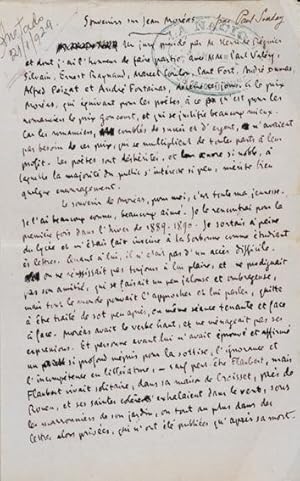 Souvenirs sur Jean Moréas par Paul Souday
21/1/929.
LA NACION
Un jury présidé par M. Henri de Régnier
et dont j'ai l'honneur de faire partie, avec MM. Paul Valéry,
Silvain, Ernest Raynaud, Marcel Coulon, Paul Fort, André Dumas,
Alfred Poizat et André Fontainas, décerne ces jours-ci le prix
Moréas, qui équivaut pour les poètes à ce qu'est pour les
romanciers le prix Goncourt, et qui se justifie beaucoup mieux.
Car les romanciers, comblés de succès et d'argent, n'avaient
pas besoin de ces prix, qui se multiplient de toutes parts à leur
profit. Les poètes sont déshérités, et leur œuvre si noble, à
laquelle la majorité du public s'intéresse si peu, mérite bien
quelque encouragement.
Le souvenir de Moréas, pour moi, c'est toute ma jeunesse.
Je l'ai beaucoup connu, beaucoup aimé. Je le rencontrai pour la
première fois dans l'hiver de 1889-1890. Je sortais à peine
du lycée et m'étais fait inscrire à la Sorbonne comme étudiant
ès lettres. Quant à lui, il n'était pas d'un accès difficile.
on ne réussissait pas toujours à lui plaire, et ne prodiguait
pas son amitié, qui se faisait un peu jalouse et ombrageuse,
mais tout le monde pouvait l'approcher et lui parler, quitte
à être traité de sot peu après, en même séance tenante et face
à face. Moréas avait le verbe haut, et ne ménageait pas ses
expressions. Et personne avant lui n'avait éprouvé et affirmé
un si profond mépris pour la sottise, l'ignorance et
l'incompétence en littérature, – sauf peut-être Flaubert, mais
Flaubert vivait solitaire, dans sa maison de Croisset, près de
Rouen, et ses saintes colères s'exhalaient dans le vent, sous
les marronniers de son jardin, ou tout au plus dans des
lettres, alors privées, qui n'ont été publiées qu'après sa mort.